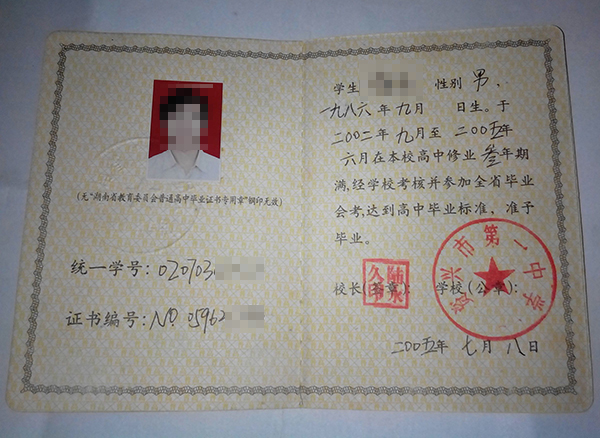 (无“湖南省教育委员会普通高中毕业证书专用章”钢印无效)
统一学号：020703
证书编号：NO.05962
学生 性别 男，
一九八六年九月 日生。于
二〇〇二年九月至二〇〇五年
六月在本校高中修业叁年期
满，经学校考核并参加全省毕业
会考，达到高中毕业标准，准予
毕业。
校长(签章)： 学校(公章)：
资兴市第一中学
二〇〇五年七月八日